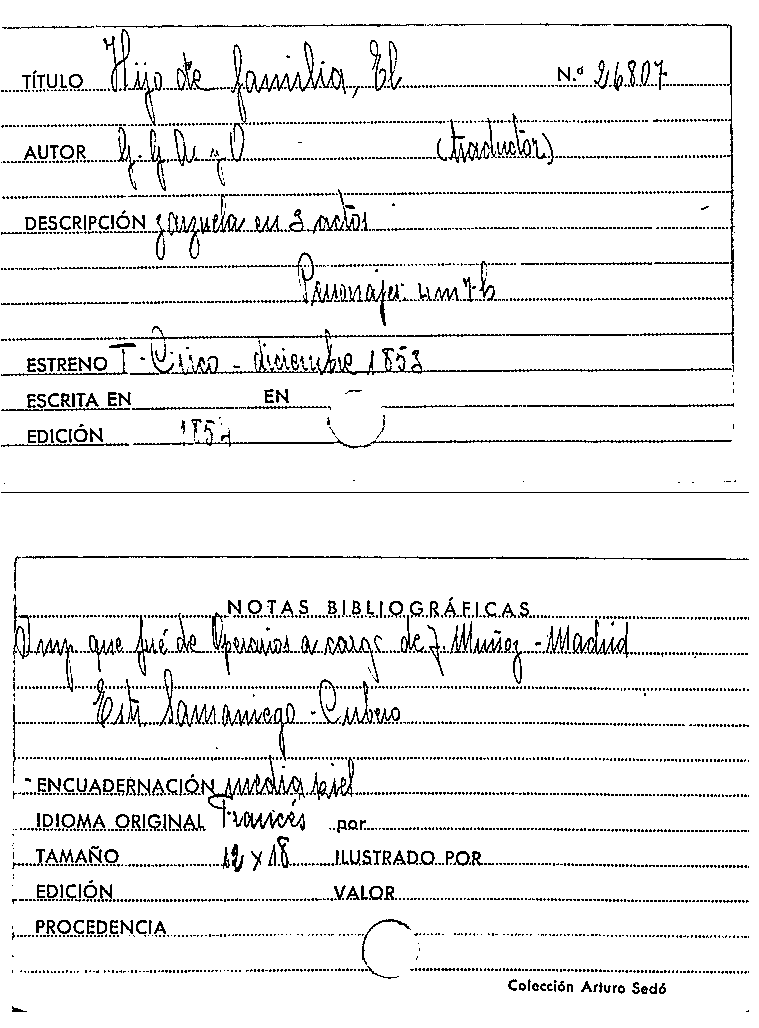 TÍTULO Hijo de familia, El N.º 26807
AUTOR G. G. A. y O (traductor)
DESCRIPCIÓN zarzuela en 3 actos
Personajes 4m 7h
ESTRENO T. Circo - diciembre 1853
ESCRITA EN EN
EDICIÓN 1853
NOTAS BIBLIOGRÁFICAS
Imp que fué de Operarios a cargo de J. Muñoz - Madrid
Estr. Samaniego - Cubero
ENCUADERNACIÓN media piel
IDIOMA ORIGINAL Francés por
TAMAÑO 12 x 18 ILUSTRADO POR
EDICIÓN VALOR
PROCEDENCIA
Colección Arturo Sedó